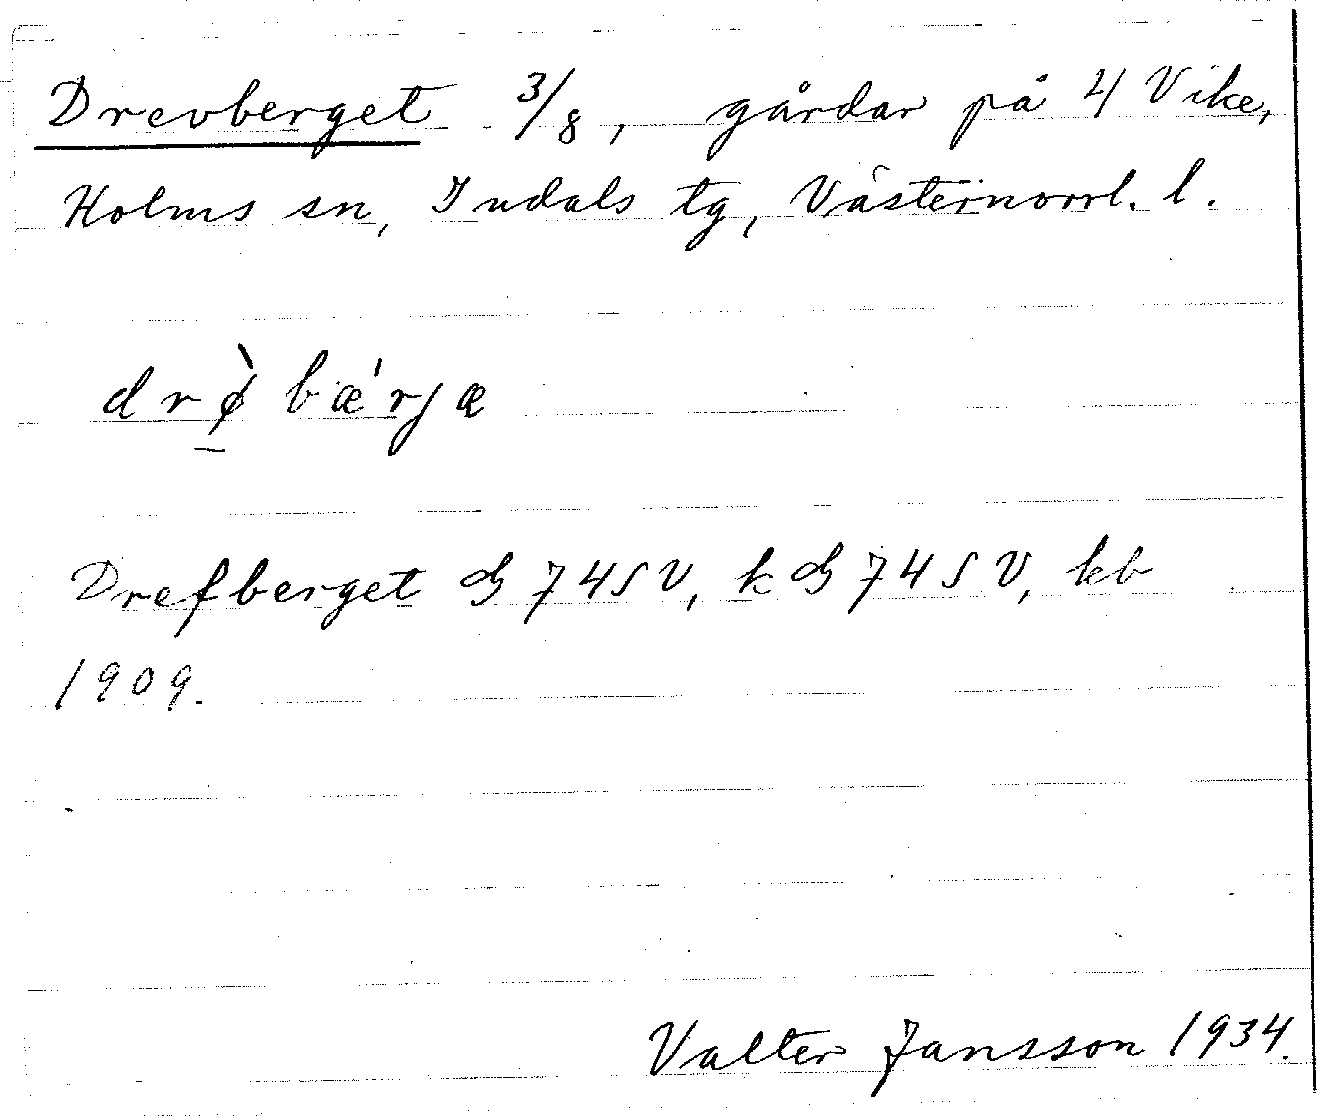 Drevberget 3/8, gårdar på 4 Vike,
Holms sn, Indals tg, Västernorrl. l.
drø̀bæ'rjæ
Drefberget G 74 SV, k G 74 SV, kb
1909.
Valter Jansson 1934.